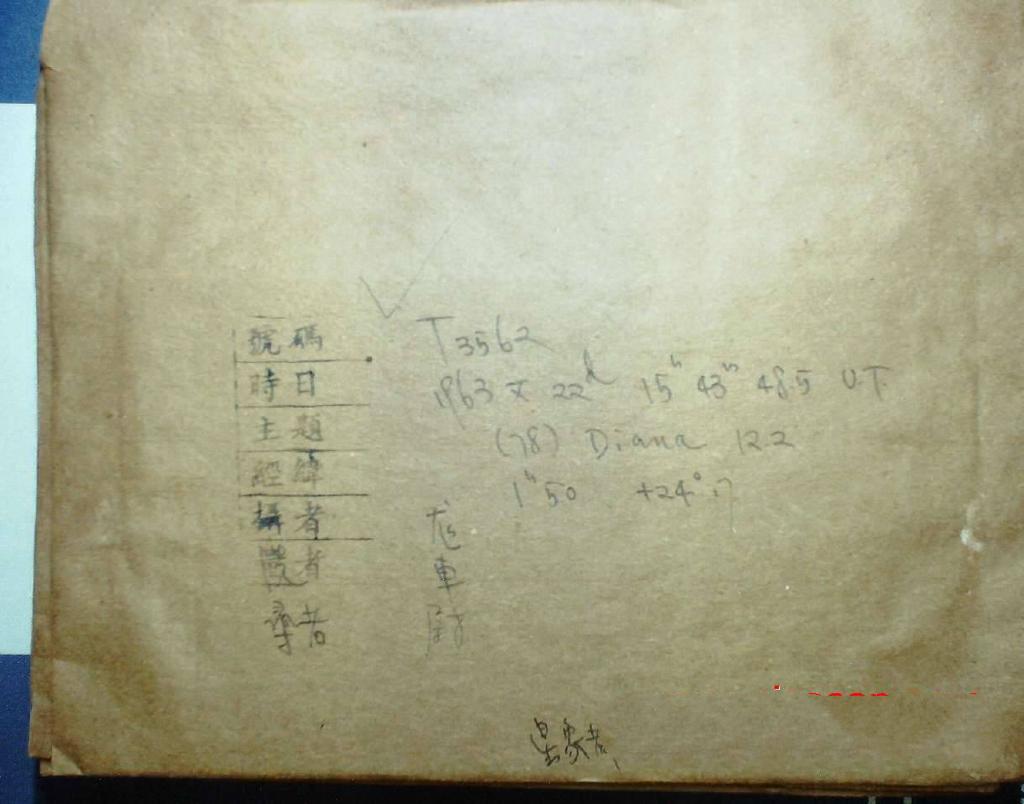 號碼 T3562
時日 1963 X 22d 15h 43m 48.5 U.T.
主題 (78) Diana 12.2
經緯 1h 50 +24°.7
攝者
者
尋者